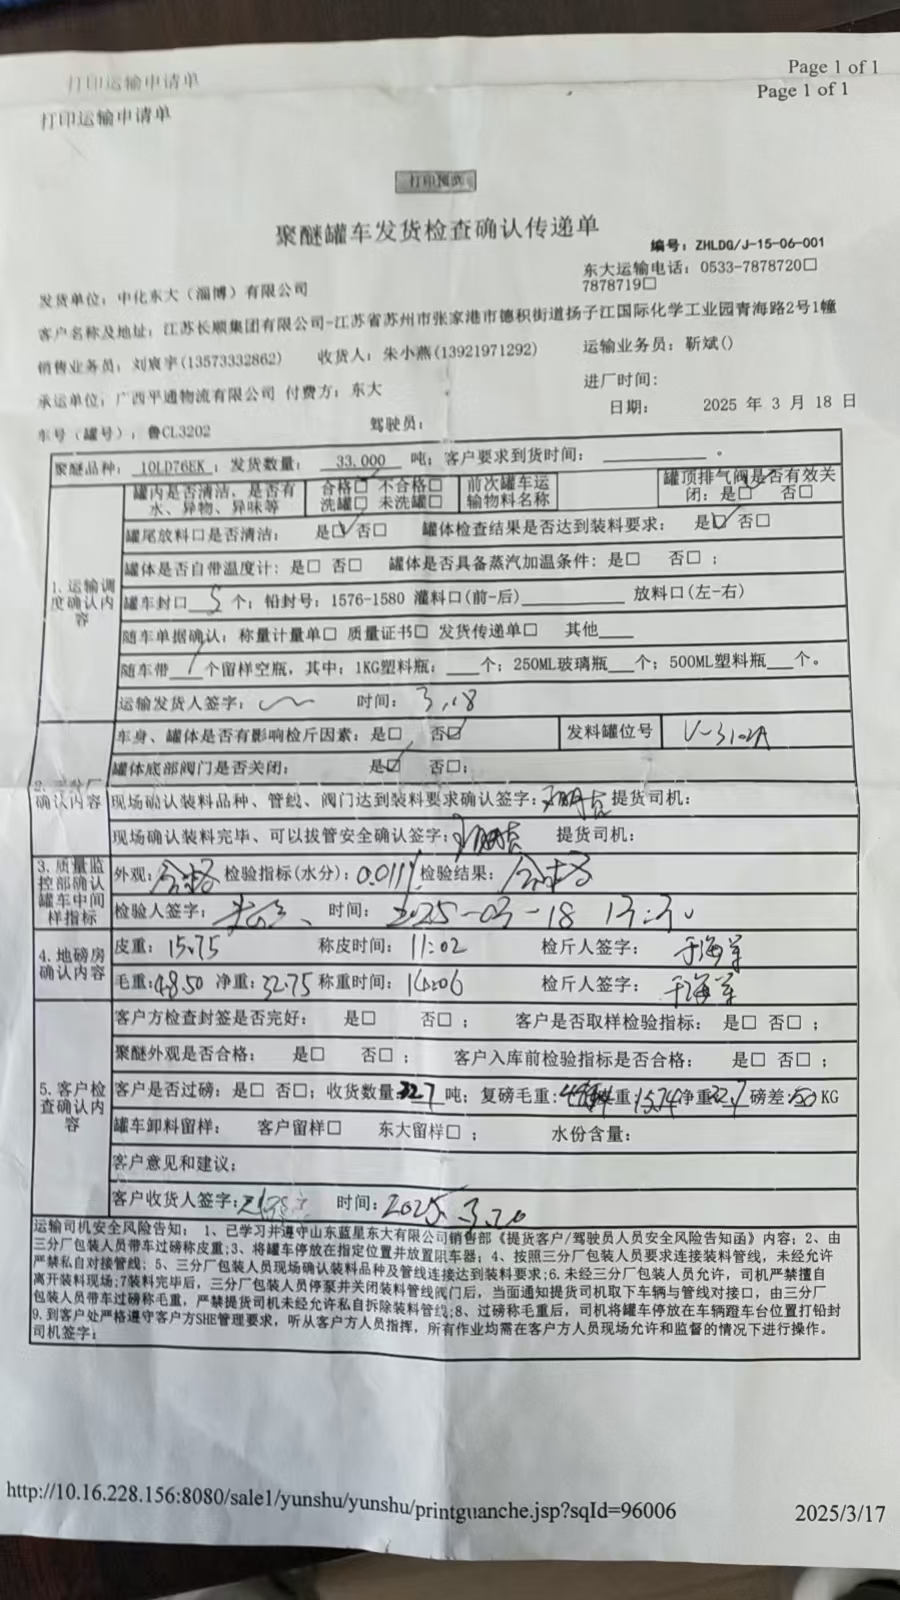 打印运输申请单
Page 1 of 1
Page 1 of 1
打印运输申请单
打印预览
聚醚罐车发货检查确认传递单
编号：ZHLDG/J-15-06-001
东大运输电话：0533-7878720□
7878719□
发货单位：中化东大（淄博）有限公司
客户名称及地址：江苏长顺集团有限公司-江苏省苏州市张家港市德积街道扬子江国际化学工业园青海路2号1幢
销售业务员：刘宸宇(13573332862) 收货人：朱小燕(13921971292) 运输业务员：靳斌()
进厂时间：
承运单位：广西平通物流有限公司 付费方：东大
日期： 2025 年 3 月 18 日
车号（罐号）：鲁CL3202 驾驶员：
聚醚品种：10LD76EK；发货数量： 33.000 吨；客户要求到货时间：________。
1.运输调度确认内容
罐内是否清洁，是否有水、异物、异味等 合格□ 不合格□ 洗罐□ 未洗罐□ 前次罐车运输物料名称 罐顶排气阀是否有效关闭：是□ 否□
罐尾放料口是否清洁： 是□ 否□ 罐体检查结果是否达到装料要求： 是□ 否□
罐体是否自带温度计：是□ 否□ 罐体是否具备蒸汽加温条件：是□ 否□；
罐车封口 5 个；铅封号：1576-1580 灌料口(前-后)________ 放料口(左-右)
随车单据确认：称量计量单□ 质量证书□ 发货传递单□ 其他___
随车带 1 个留样空瓶，其中：1KG塑料瓶：___个；250ML玻璃瓶___个；500ML塑料瓶___个。
运输发货人签字： 时间： 3.18
确认内容
车身、罐体是否有影响检斤因素：是□ 否□ 发料罐位号 V-3102A
罐体底部阀门是否关闭： 是□ 否□；
现场确认装料品种、管线、阀门达到装料要求确认签字： 提货司机：
现场确认装料完毕、可以拔管安全确认签字： 提货司机：
3.质量监控部确认罐车中间样指标
外观：合格 检验指标(水分)：0.011% 检验结果：合格
检验人签字： 时间： 2025-03-18 13:30
4.地磅房确认内容
皮重：15.75 称皮时间：11:02 检斤人签字： 于海军
毛重：48.50 净重：32.75 称重时间：14:06 检斤人签字： 于海军
5.客户检查确认内容
客户方检查封签是否完好： 是□ 否□； 客户是否取样检验指标：是□ 否□；
聚醚外观是否合格： 是□ 否□； 客户入库前检验指标是否合格： 是□ 否□；
客户是否过磅：是□ 否□；收货数量 32.7 吨；复磅毛重： 重：15.74净重：32.7 磅差：50 KG
罐车卸料留样： 客户留样□ 东大留样□； 水份含量：
客户意见和建议：
客户收货人签字： 时间：2025.3.20
运输司机安全风险告知： 1、已学习并遵守山东蓝星东大有限公司销售部《提货客户/驾驶员人员安全风险告知函》内容；2、由
三分厂包装人员带车过磅称皮重；3、将罐车停放在指定位置并放置阻车器；4、按照三分厂包装人员要求连接装料管线，未经允许
严禁私自对接管线；5、三分厂包装人员现场确认装料品种及管线连接达到装料要求；6.未经三分厂包装人员允许，司机严禁擅自
离开装料现场；7装料完毕后，三分厂包装人员停泵并关闭装料管线阀门后，当面通知提货司机取下车辆与管线对接口，由三分厂
包装人员带车过磅称毛重，严禁提货司机未经允许私自拆除装料管线；8、过磅称毛重后，司机将罐车停放在车辆蹬车台位置打铅封
9.到客户处严格遵守客户方SHE管理要求，听从客户方人员指挥，所有作业均需在客户方人员现场允许和监督的情况下进行操作。
司机签字：
http://10.16.228.156:8080/sale1/yunshu/yunshu/printguanche.jsp?sqId=96006
2025/3/17